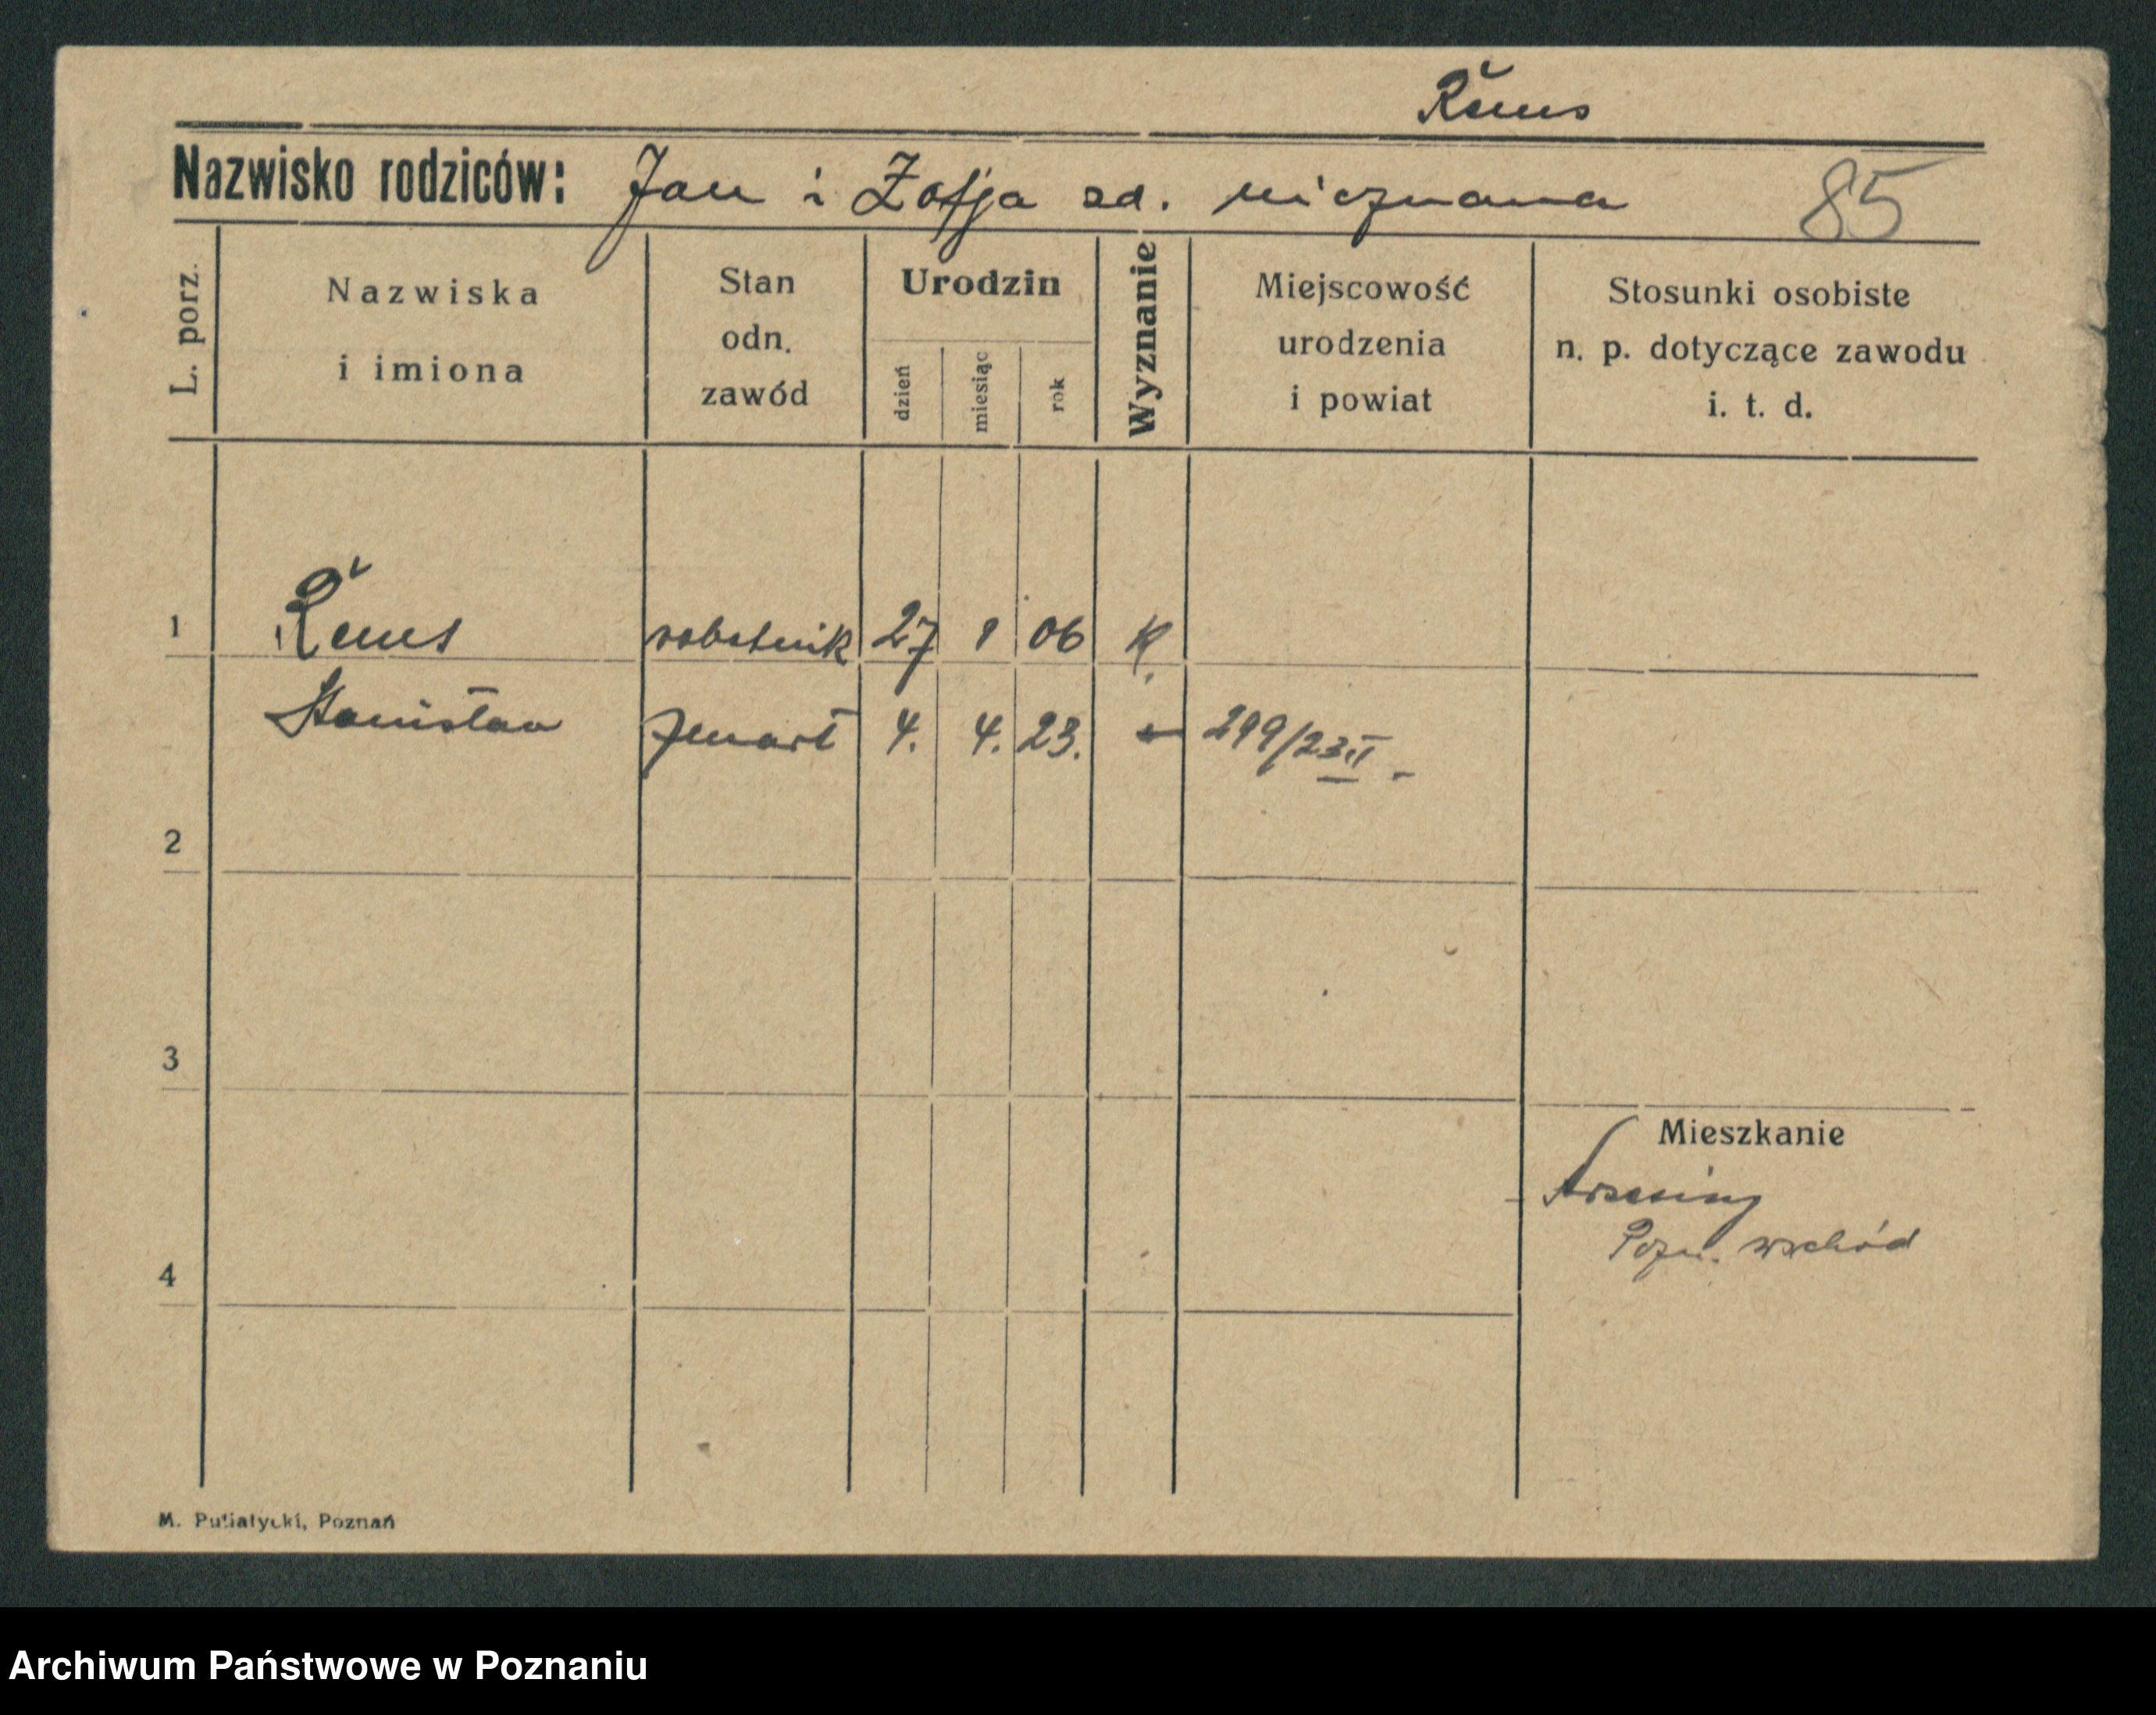 Remus
Nazwisko rodziców: Jan i Zofja zd. nieznana 85
L. porz. Nazwiska i imiona Stan odn. zawód Urodzin dzień miesiąc rok Wyznanie Miejscowość urodzenia i powiat Stosunki osobiste n. p. dotyczące zawodu i. t. d.
1 robotnik 27 1 06 K.
Stanisław zmarł 4. 4. 23. 299/23 II
2
3
Mieszkanie
Pozn. wschód
4
M. Putiatycki, Poznań
Archiwum Państwowe w Poznaniu